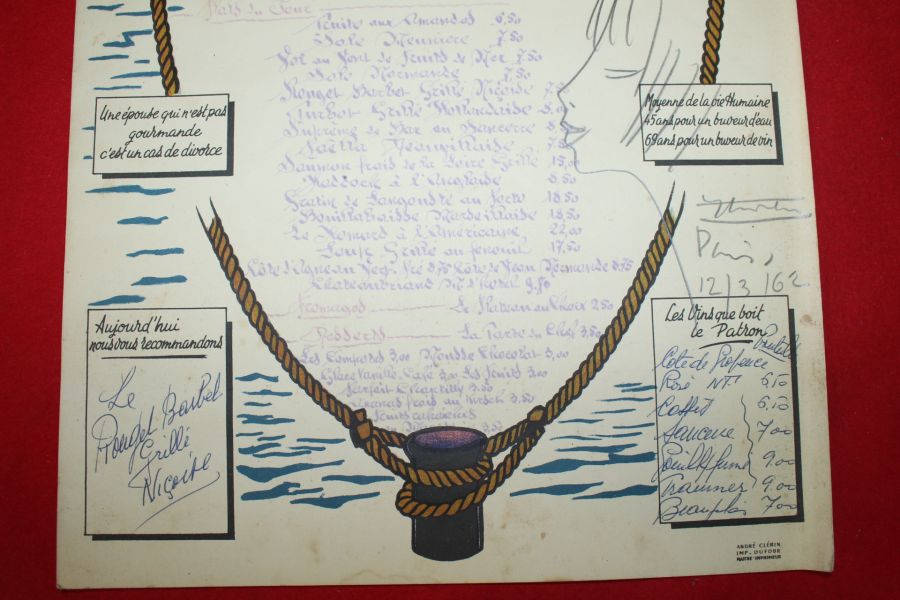 Plats du Jour
Truite aux Amandes 6,50
Sole Meuniere 7,50
Vol au Vent de Fruits de Mer 7,50
Sole Normande 7,50
Rouget Barbet Grillé Niçoise
Turbot Grillé Hollandaise
Supreme de Bar au Sancerre
Saumon frais de la Loire Grillé 15,00
Haddock à l'Anglaise 6,50
Gratin de Langouste au Porto 18,50
Bouillabaisse Marseillaise 18,50
Le Homard à l'Americaine 22,00
Loup Grillé au fenouil 17,50
Côte d'Agneau Vert Pré 8,75 Côte de Veau Normande 8,75
Chateaubriand Me d'Hotel 9,50
Fromages Le Plateau au Choix 2,50
Desserts La Tarte du Chef 3,50
Les Compotes 3,00 Mousse Chocolat 3,00
Glace Vanille Café 3,00 Les Fruits 3,00
Parfait Chantilly 3,00
Ananas frais au Kirsch 3,50
Une épouse qui n'est pas
gourmande
c'est un cas de divorce
Moyenne de la vie Humaine
45 ans pour un buveur d'eau
69 ans pour un buveur de vin
Paris,
12/3/62
Aujourd'hui
nous vous recommandons
Le
Rouget Barbet
Grillé
Niçoise
Les Vins que boit
le Patron
bouteille
Côte de Provence
Rosé 6.50
Cassis 6.50
Sancerre 7.00
Pouilly fumé 9.00
Traminer 9.00
Beaujolais 7.00
ANDRÉ CLÉRIN
IMP. DUFOUR
MAITRE IMPRIMEUR